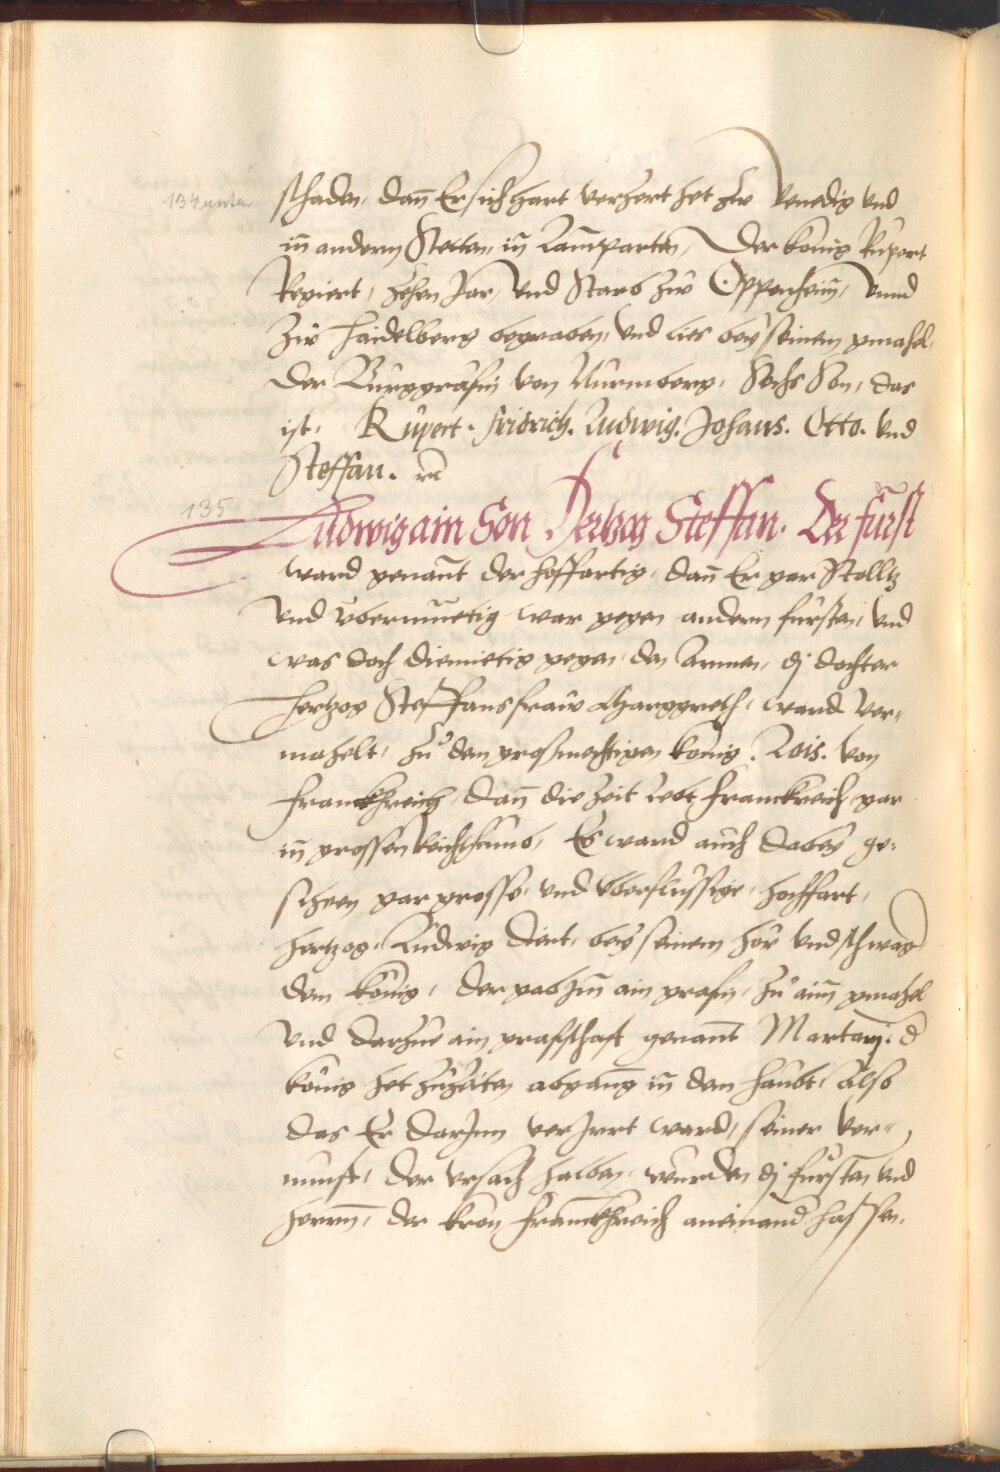 134 unten
schaden, dan̄ Er sich hart verzert het zw Venedig vnd
in̄ andern Stetten, in̄ Lamparten, Der konig Rupert
Regiert, zehen Jar, vnd Starb zw Oppenheim̄, vnnd
Zw Haidelberg begraben, vnd lies bey seinem gmahel,
Der Burggrafin von Nurmberg, Sechs Son, das
ist, Rupert. fridrich. Ludwig. Johans. Otto. vnd
Steffan.
135
Ludwig ain Son Hertzog Steffan. Der fürst
ward genant̄ der hoffartig, dan̄ Er gar Stolltz
vnd vbermuetig war gegen andern fursten, vnd
was doch diemietig gegen den Armen, dj dochter
Hertzog Steffans fraw Marggreth, ward ver„
mahelt, zu dem grosmechtigen konig. Lois. von
Franckhreich, dan̄ die zeit lebt Franckreich gar
in̄ grossen Reichthumb, Es ward auch dabey ge„
sehen gar grosse, vnd vberflussige, hoffart,
Hertzog Ludwig dient, bey seinem her vnd schwag
dem konig, der gab im̄ ain grafin, zu aim̄ gmahel
Vnd darzue ain grafschaft genant̄ Martanj. d
konig het zuzeiten abgang in̄ dem haubt, Also
das Er darJnn verJrrt ward, seiner ver„
nunft, der vrsach halben, wurden dj fursten vnd
herrn̄, der kron Franckhreich aneinand hassen,